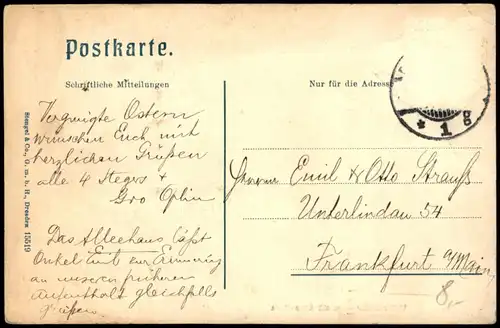 Postkarte.
Schriftliche Mitteilungen
Nur für die Adresse
Vergnügte Ostern
wünschen Euch mit
herzlichen Grüßen
alle 4
Das Alleehaus läßt
Onkel Emil zur Erinnerung
an unseren früheren
Aufenthalt gleichfalls
grüßen.
Herren Emil & Otto Strauß
Unterlindau 54
Frankfurt a/Main
8,-
* 1 g
Stengel & Co., G. m. b. H., Dresden 15519